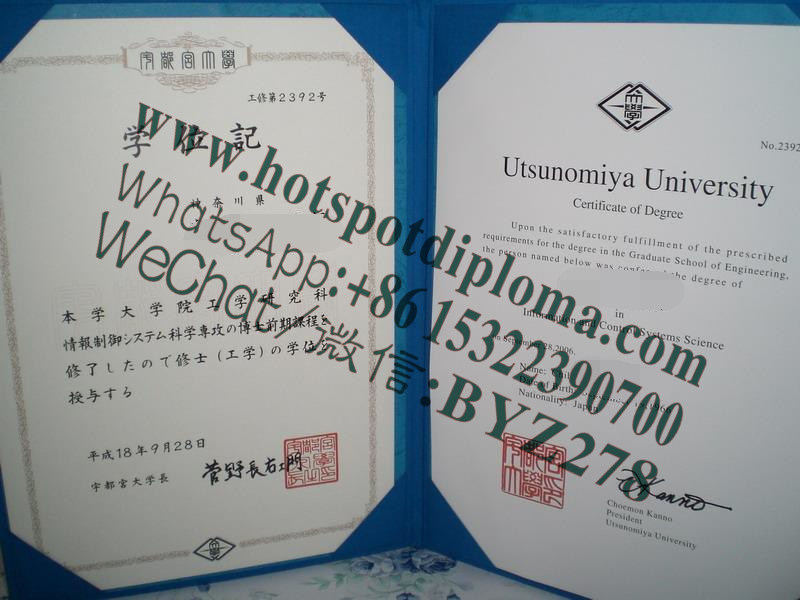 宇都宮大學
工修第2392号
学位記
神奈川県
本学大学院工学研究科
情報制御システム科学専攻の博士前期課程を
修了したので修士(工学)の学位を
授与する
平成18年9月28日
宇都宮大学長
菅野長右エ門
No.2392
Utsunomiya University
Certificate of Degree
Upon the satisfactory fulfillment of the prescribed
requirements for the degree in the Graduate School of Engineering,
the person named below was conferred the degree of
in
Information and Control Systems Science
on September 28, 2006.
Name:
Date of Birth: 1966
Nationality: Japan
Kanno
Choemon Kanno
President
Utsunomiya University
www.hotspotdiploma.com
WhatsApp:+86 15322390700
WeChat/微信:BYZ278